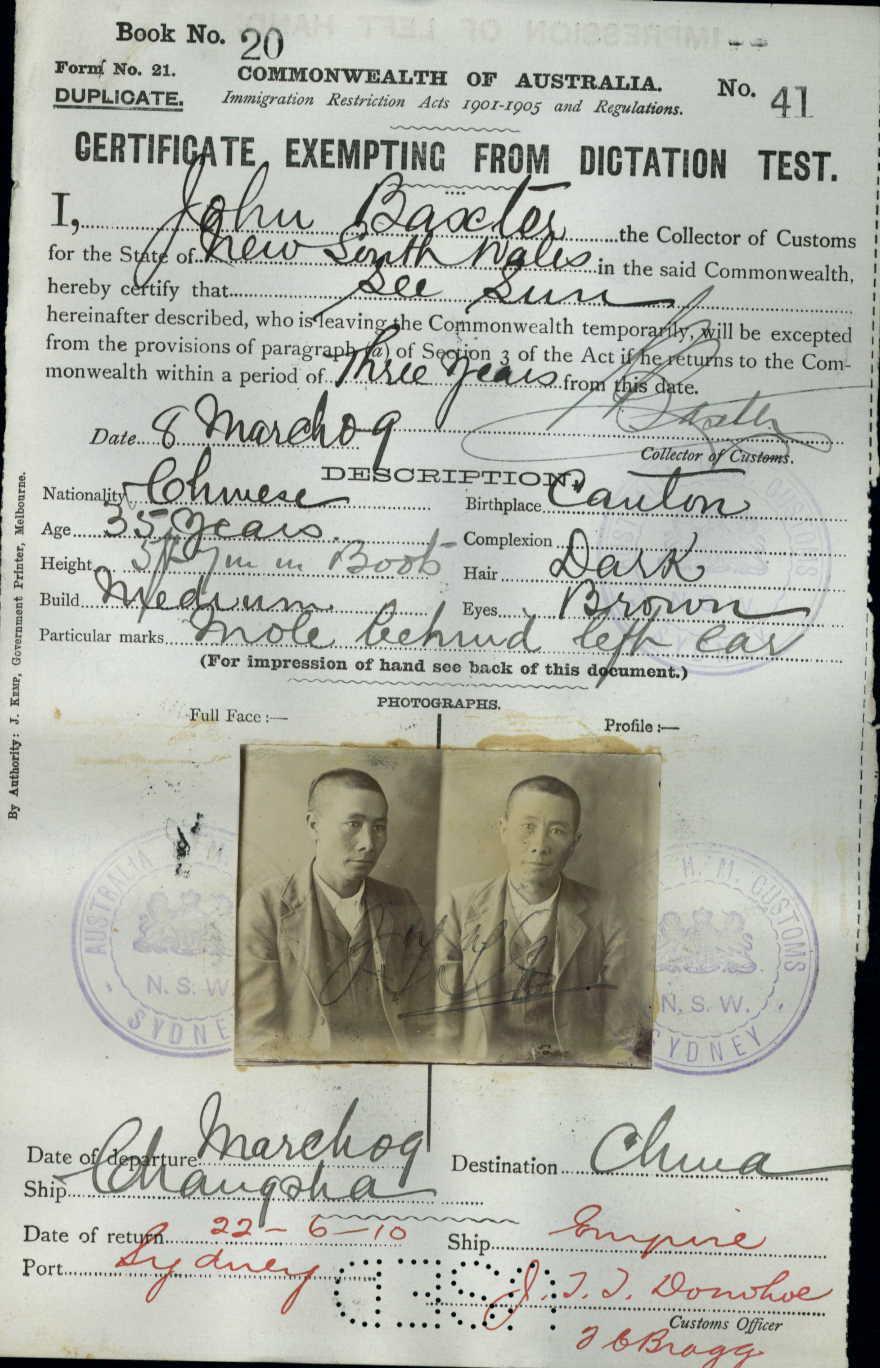 Book No. 20
Form No. 21.
COMMONWEALTH OF AUSTRALIA.
No. 41
DUPLICATE.
Immigration Restriction Acts 1901-1905 and Regulations.
CERTIFICATE EXEMPTING FROM DICTATION TEST.
I, John Baxter the Collector of Customs
for the State of New South Wales in the said Commonwealth,
hereby certify that See Sun
hereinafter described, who is leaving the Commonwealth temporarily, will be excepted
from the provisions of paragraph (a) of Section 3 of the Act if he returns to the Com-
monwealth within a period of Three Years from this date.
Date 8 March 09
Baxter
Collector of Customs.
DESCRIPTION.
Nationality Chinese
Birthplace Canton
Age 35 Years
Complexion
Height 5ft 7in in Boots
Hair Dark
Build Medium
Eyes Brown
Particular marks Mole behind left ear
(For impression of hand see back of this document.)
PHOTOGRAPHS.
Full Face :—
Profile :—
By Authority: J. KEMP, Government Printer, Melbourne.
AUSTRALIA H. M.
N. S. W.
SYDNEY
H. M. CUSTOMS
N. S. W.
SYDNEY
Date of departure March 09
Destination China
Ship Changsha
Date of return 22-6-10
Ship Empire
Port Sydney
J. T. T. Donohoe
Customs Officer
J C Bragg